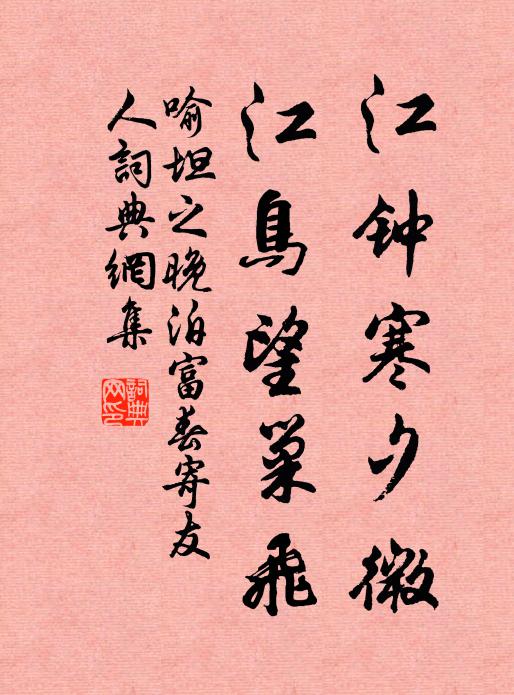 江钟寒夕微
江鳥望巢飛
喻坦之晚泊富春寄友
人詞典網集
詞典網印